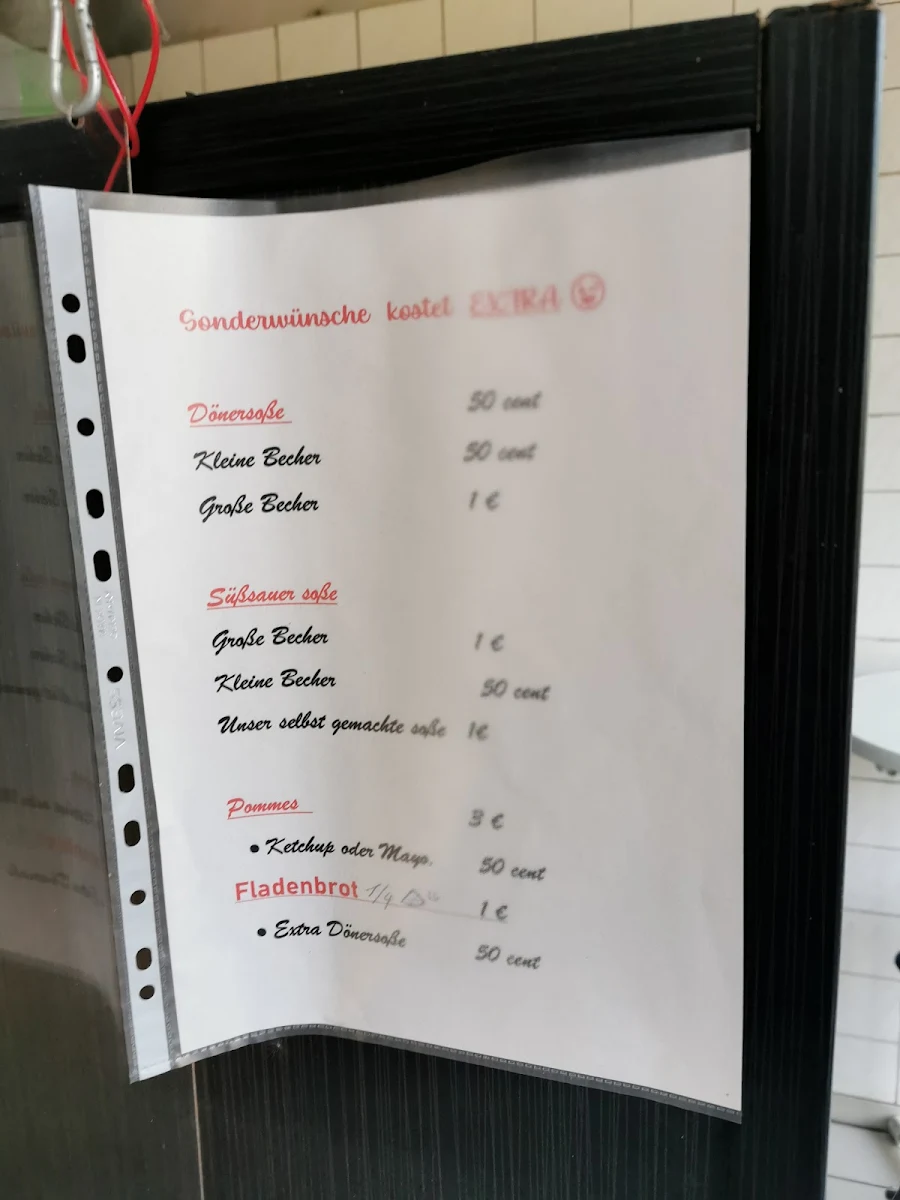 Sonderwünsche kostet EXTRA
Dönersoße 50 cent
Kleine Becher 50 cent
Große Becher 1 €
Süßsauer soße
Große Becher 1 €
Kleine Becher 50 cent
Unser selbst gemachte soße 1€
Pommes 3 €
• Ketchup oder Mayo. 50 cent
Fladenbrot 1/4 1 €
• Extra Dönersoße 50 cent